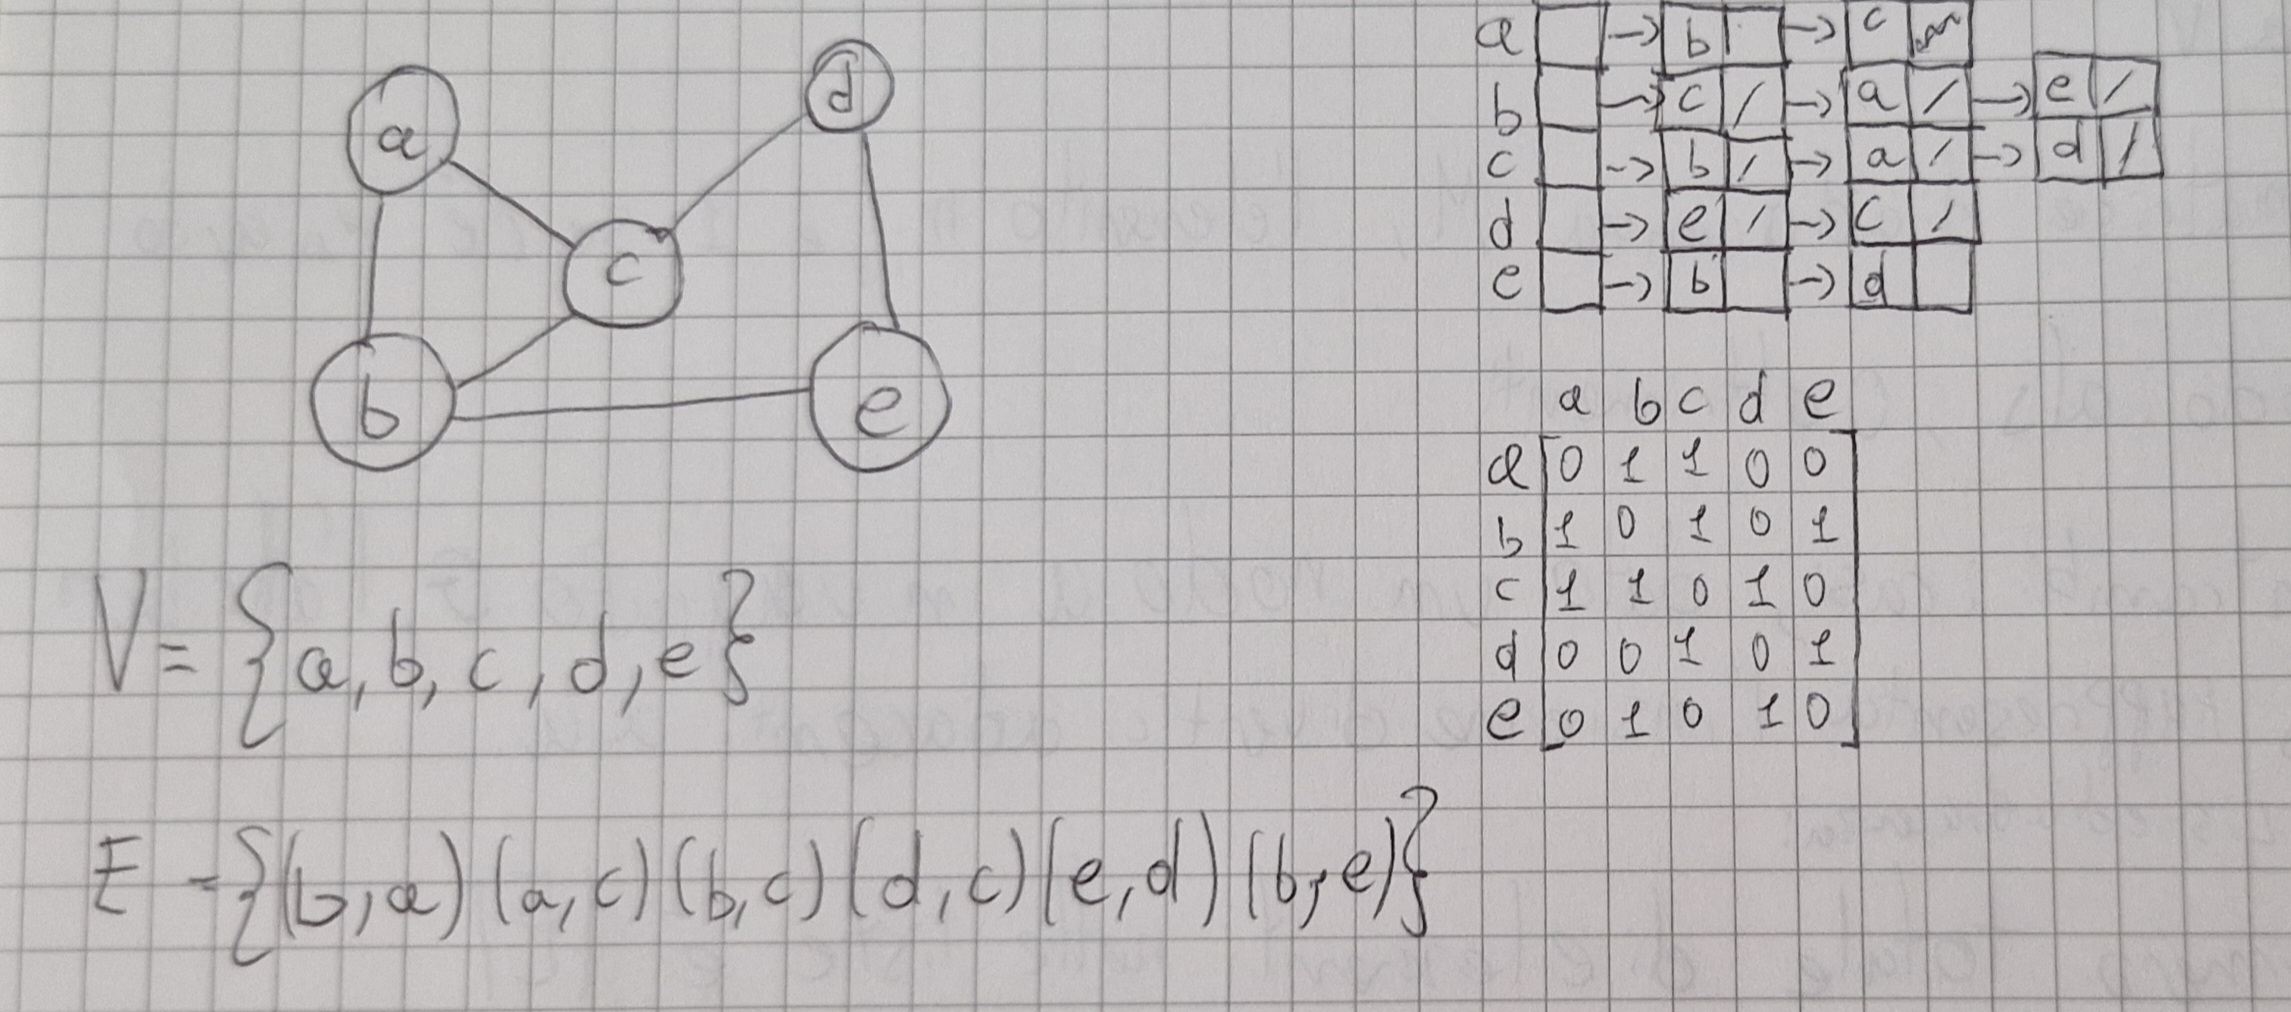 a
d
c
b
e
V = {a, b, c, d, e}
E = {(b,a) (a,c) (b,c) (d,c) (e,d) (b,e)}
a → b → c
b → c / → a / → e /
c → b / → a / → d /
d → e / → c /
e → b → d
a b c d e
a [0 1 1 0 0]
b 1 0 1 0 1
c 1 1 0 1 0
d 0 0 1 0 1
e 0 1 0 1 0